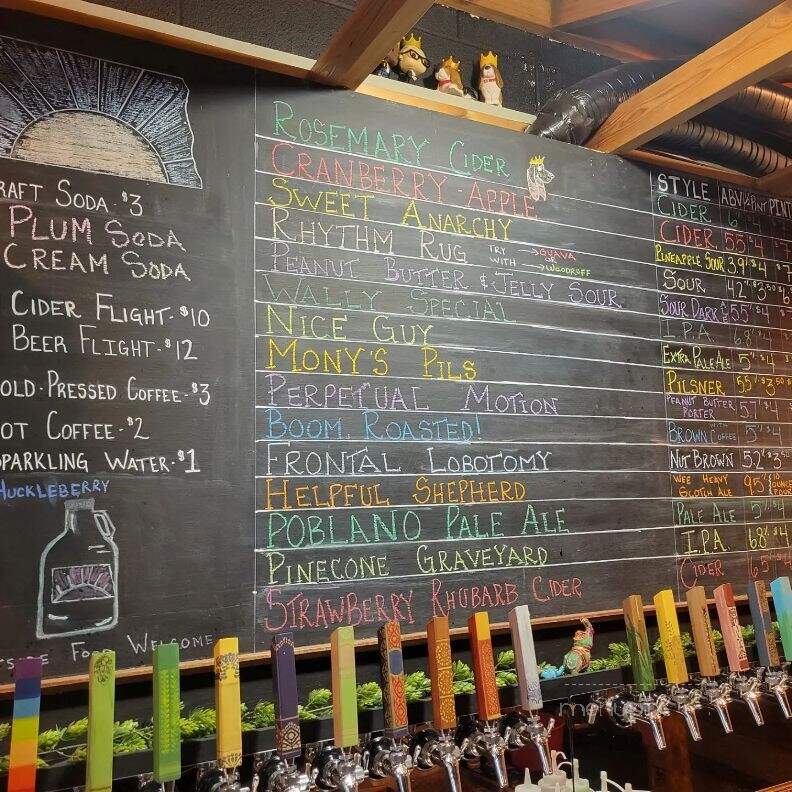 RAFT SODA $3
PLUM SODA
CREAM SODA
CIDER FLIGHT - $10
BEER FLIGHT - $12
OLD-PRESSED COFFEE - $3
OT COFFEE - $2
SPARKLING WATER - $1
HUCKLEBERRY
FOOD WELCOME
STYLE ABV
ROSEMARY CIDER CIDER
CRANBERRY-APPLE CIDER 5.5% $4
SWEET ANARCHY PINEAPPLE SOUR 3.9% $4
RHYTHM RUG TRY WITH → GUAVA OR → WOODRUFF SOUR 4.2% $3.50
PEANUT BUTTER & JELLY SOUR SOUR DARK ALE 5.5% $4
WALLY SPECIAL I.P.A. 6.8% $4
NICE GUY EXTRA PALE ALE 5% $4
MONY'S PILS PILSNER 5.5% $3.50
PERPETUAL MOTION PEANUT BUTTER PORTER 5.7% $4
BOOM, ROASTED! BROWN WITH COFFEE 5% $4
FRONTAL LOBOTOMY NUT BROWN 5.2% $3.50
HELPFUL SHEPHERD WEE HEAVY SCOTCH ALE 9.5% 10 OUNCE POUR
POBLANO PALE ALE PALE ALE 5% $4
PINECONE GRAVEYARD I.P.A. 6.8% $4
STRAWBERRY RHUBARB CIDER CIDER 6.5% $4